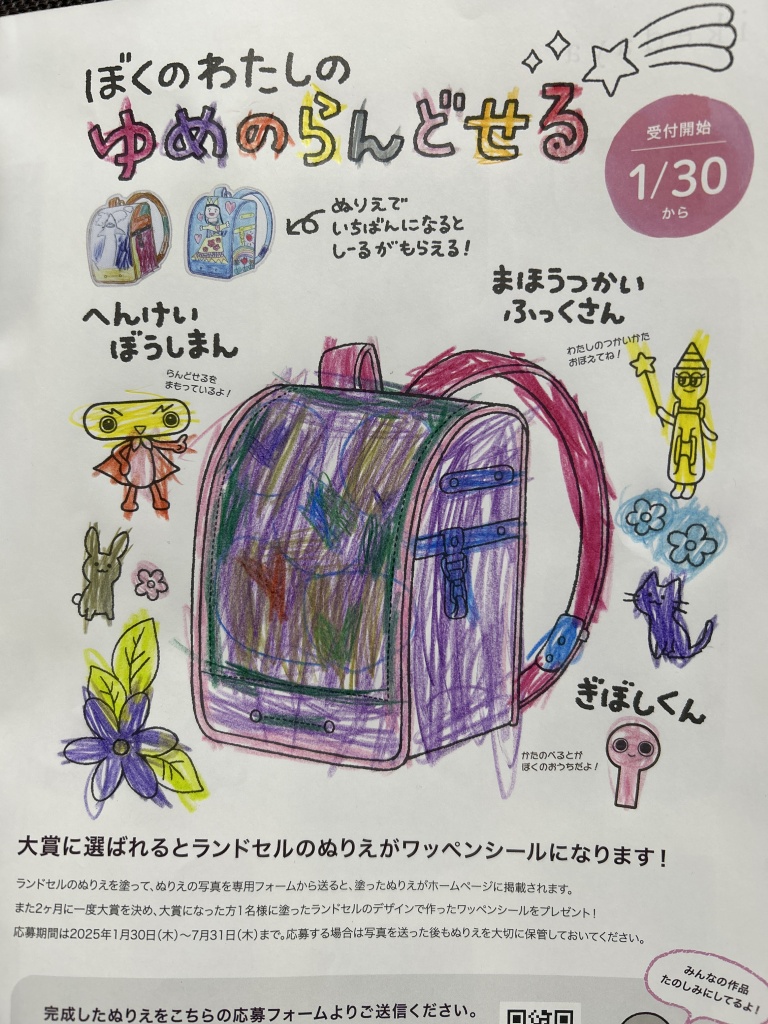 ぼくのわたしの
ゆめのらんどせる
受付開始
1/30
から
ぬりえで
いちばんになると
しーるがもらえる!
まほうつかい
ふっくさん
わたしのつかいかた
おぼえてね!
へんけい
ぼうしまん
らんどせるを
まもっているよ!
ぎぼしくん
かたのべるとが
ぼくのおうちだよ!
大賞に選ばれるとランドセルのぬりえがワッペンシールになります!
ランドセルのぬりえを塗って、ぬりえの写真を専用フォームから送ると、塗ったぬりえがホームページに掲載されます。
また2ヶ月に一度大賞を決め、大賞になった方1名様に塗ったランドセルのデザインで作ったワッペンシールをプレゼント!
応募期間は2025年1月30日(木)〜7月31日(木)まで。応募する場合は写真を送った後もぬりえを大切に保管しておいてください。
みんなの作品
たのしみにしてるよ!
完成したぬりえをこちらの応募フォームよりご送信ください。